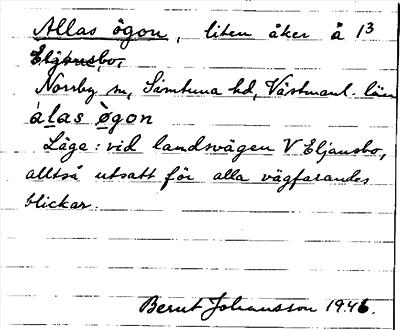 Allas ögon, liten åker å 1³
Eljansbo,
Norrby sn, Simtuna hd, Västmanl. län
àlas ò̱gon
Läge: vid landsvägen V Eljansbo,
alltså utsatt för alla vägfarandes
blickar.
Bernt Johansson 1946.